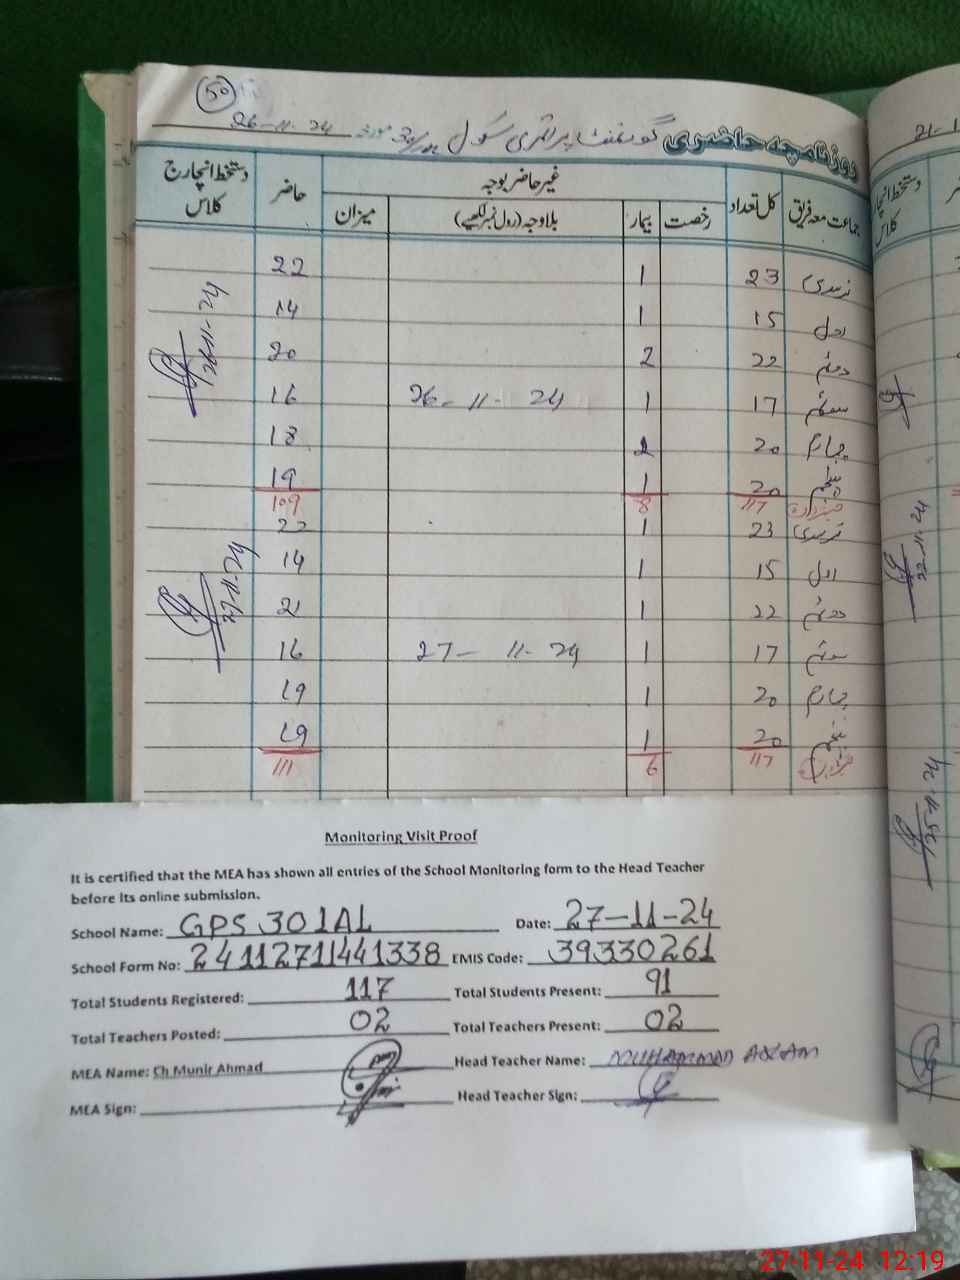 50
روزنامچہ حاضری گورنمنٹ پرائمری سکول 301/AL مورخہ 26-11-24
جماعت معہ فریق کل تعداد رخصت بیمار غیر حاضر بوجہ بلا وجہ (رول نمبر لکھیے) میزان حاضر دستخط انچارج کلاس
نرسری 23 1 22
اول 15 1 14
دوئم 22 2 20
سوئم 17 1 26-11-24 16
چہارم 20 2 18
پنجم 20 1 19
میزان 117 8 109
26-11-24
نرسری 23 1 22
اول 15 1 14
دوئم 22 1 21
سوئم 17 1 27-11-24 16
چہارم 20 1 19
پنجم 20 1 19
میزان 117 6 111
27-11-24
دستخط انچارج کلاس
22-11-24
25-11-24
Monitoring Visit Proof
It is certified that the MEA has shown all entries of the School Monitoring form to the Head Teacher
before its online submission.
School Name: GPS 301AL Date: 27-11-24
School Form No: 24112711441338 EMIS Code: 39330261
Total Students Registered: 117 Total Students Present: 91
Total Teachers Posted: 02 Total Teachers Present: 02
MEA Name: Ch Munir Ahmad Head Teacher Name: MUHAMMAD ASLAM
MEA Sign: Head Teacher Sign:
27-11-24 12:19